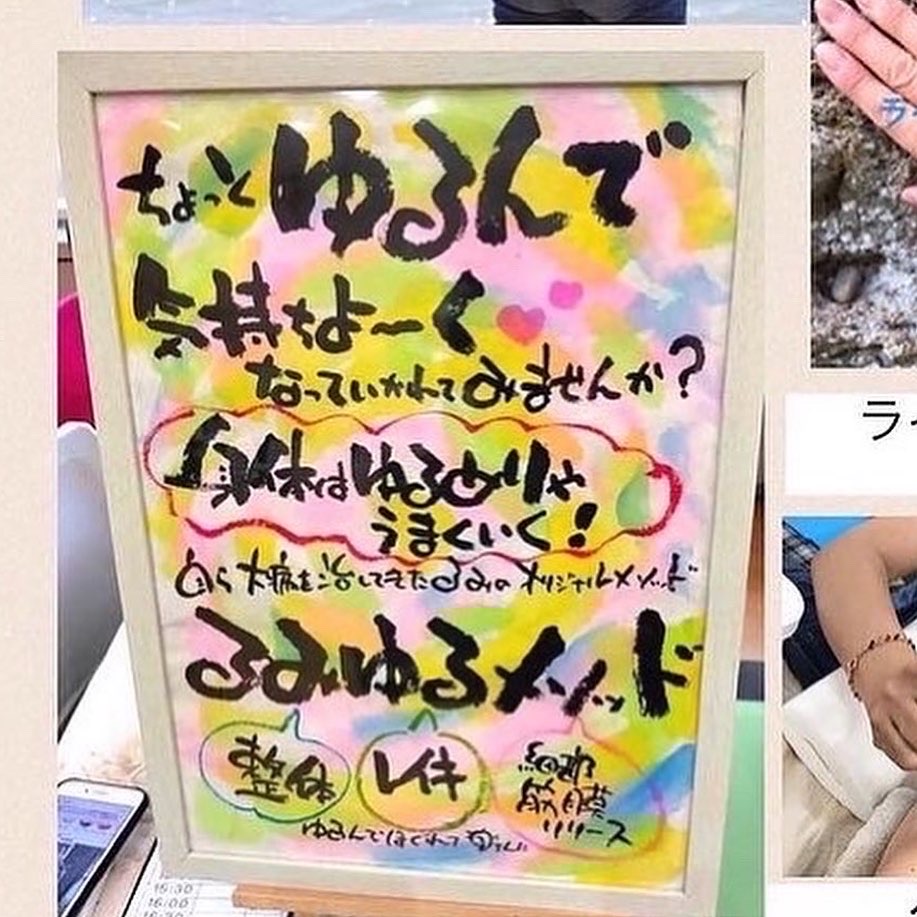 ちょっとゆるんで
気持ちよ〜く
なっていかれてみませんか?
身体はゆるめりゃ
うまくいく!
自ら大病を治してきたるみのオリジナルメソッド
るみゆるメソッド
整体
レイキ
細胞
筋膜
リリース
ゆるんでほぐれて
15:30
16:00
16:30
ライ